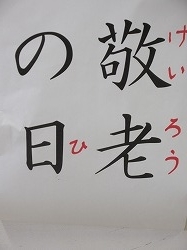 敬老
けいろう
の日
ひ